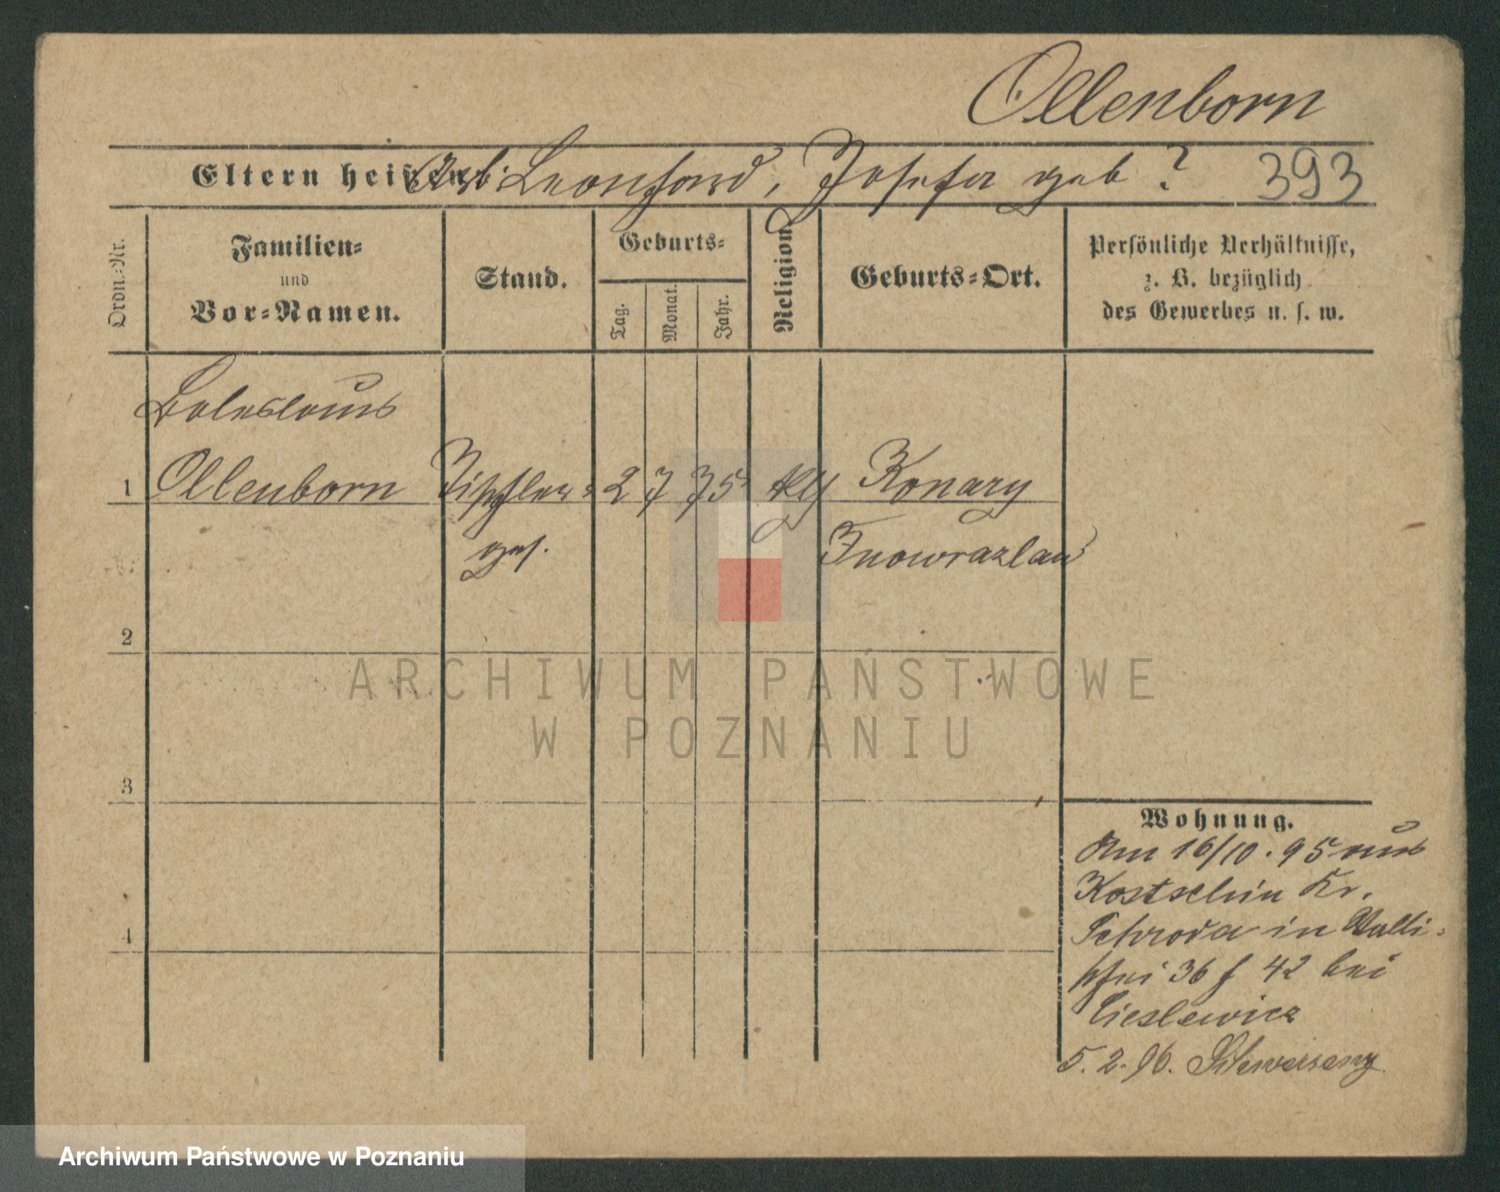 Ollenborn
Eltern heißen: Leonhard, Josefa geb ? 393
Ordn.-Nr.
Familien-
und
Vor-Namen.
Stand.
Geburts-
Tag.
Monat.
Jahr.
Religion
Geburts-Ort.
Persönliche Verhältnisse,
z. B. bezüglich
des Gewerbes u. s. w.
Boleslaus
1 Ollenborn Tischler- 2 7 75 kth Konary
ges. Inowrazlaw
2
3
4
Wohnung.
Am 16/10. 95 aus
Kostschin Kr.
Schroda in Walli-
schei 36 f 42 bei
Cieslewicz
5. 2. 96.
ARCHIWUM PAŃSTWOWE
W POZNANIU
Archiwum Państwowe w Poznaniu